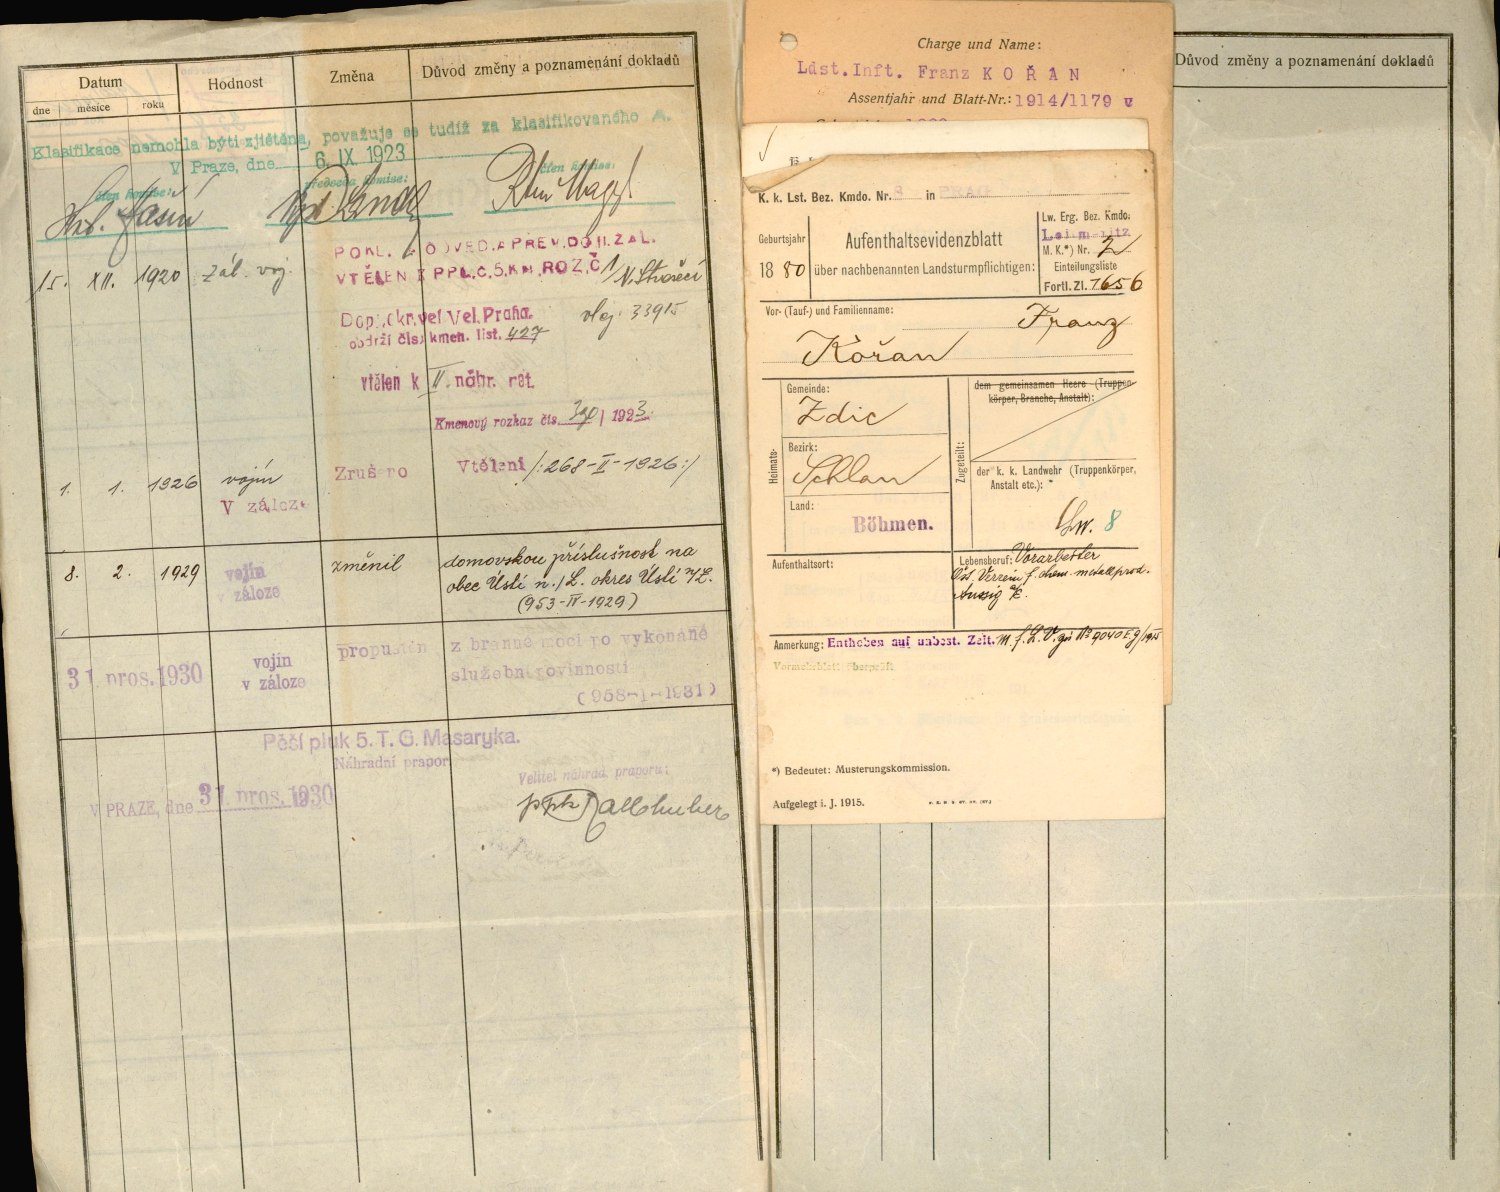 Datum
Hodnost
Změna
Důvod změny a poznamenání dokladů
dne
měsíce
roku
Klasifikace nemohla býti zjištěna, považuje se tudíž za klasifikovaného A.
V Praze, dne 6. IX. 1923
člen komise:
předseda komise:
člen komise:
15. XII. 1920 zál. voj.
POKL. ODVED. A PŘEV. DO II. ZÁL.
VTĚLEN K PPL. Č. 5. KM. ROZ. Č. 1/
N. Strašecí
Dopl. okr. vel Vel. Praha.
obdrží čís. kmen. list. 427
vloj. 33915
vtělen k II. náhr. rot.
Kmenový rozkaz čís. 390/1923.
1. 1. 1926 vojín
V záloze
Zrušeno
Vtělení /:268-II-1926:/
8. 2. 1929 vojín
v záloze
změnil
domovskou příslušnost na
obec Ústí n./L. okres Ústí n/L.
(953-IV-1929)
31 pros. 1930
vojín
v záloze
propuštěn
z branné moci po vykonané
služební povinnosti
(958-I-1931)
Pěší pluk 5. T. G. Masaryka.
Náhradní prapor
V PRAZE, dne 31 pros. 1930
Velitel náhrad. praporu:
Charge und Name:
Ldst. Inft. Franz KOŘAN
Assentjahr und Blatt-Nr.: 1914/1179 v
K. k. Lst. Bez. Kmdo. Nr. 8 in PRAG
Geburtsjahr
1880
Aufenthaltsevidenzblatt
über nachbenannten Landsturmpflichtigen:
Lw. Erg. Bez. Kmdo.
Leitmeritz
M. K.*) Nr. 2
Einteilungsliste
Fortl. Zl. 7656
Vor- (Tauf-) und Familienname:
Franz
Kořan
Heimats-
Gemeinde:
Zdic
Bezirk:
Schlan
Land:
Böhmen.
Zugeteilt:
dem gemeinsamen Heere (Truppenkörper, Branche, Anstalt):
der k. k. Landwehr (Truppenkörper,
Anstalt etc.):
Lw. 8
Aufenthaltsort:
Lebensberuf: Vorarbeiter
Öst. Verein f. chem. metall prod.
Aussig a/E.
Anmerkung: Enthoben auf unbest. Zeit. M. f. L. V. 
Vormerkblatt überprüft
*) Bedeutet: Musterungskommission.
Aufgelegt i. J. 1915.
Důvod změny a poznamenání dokladů